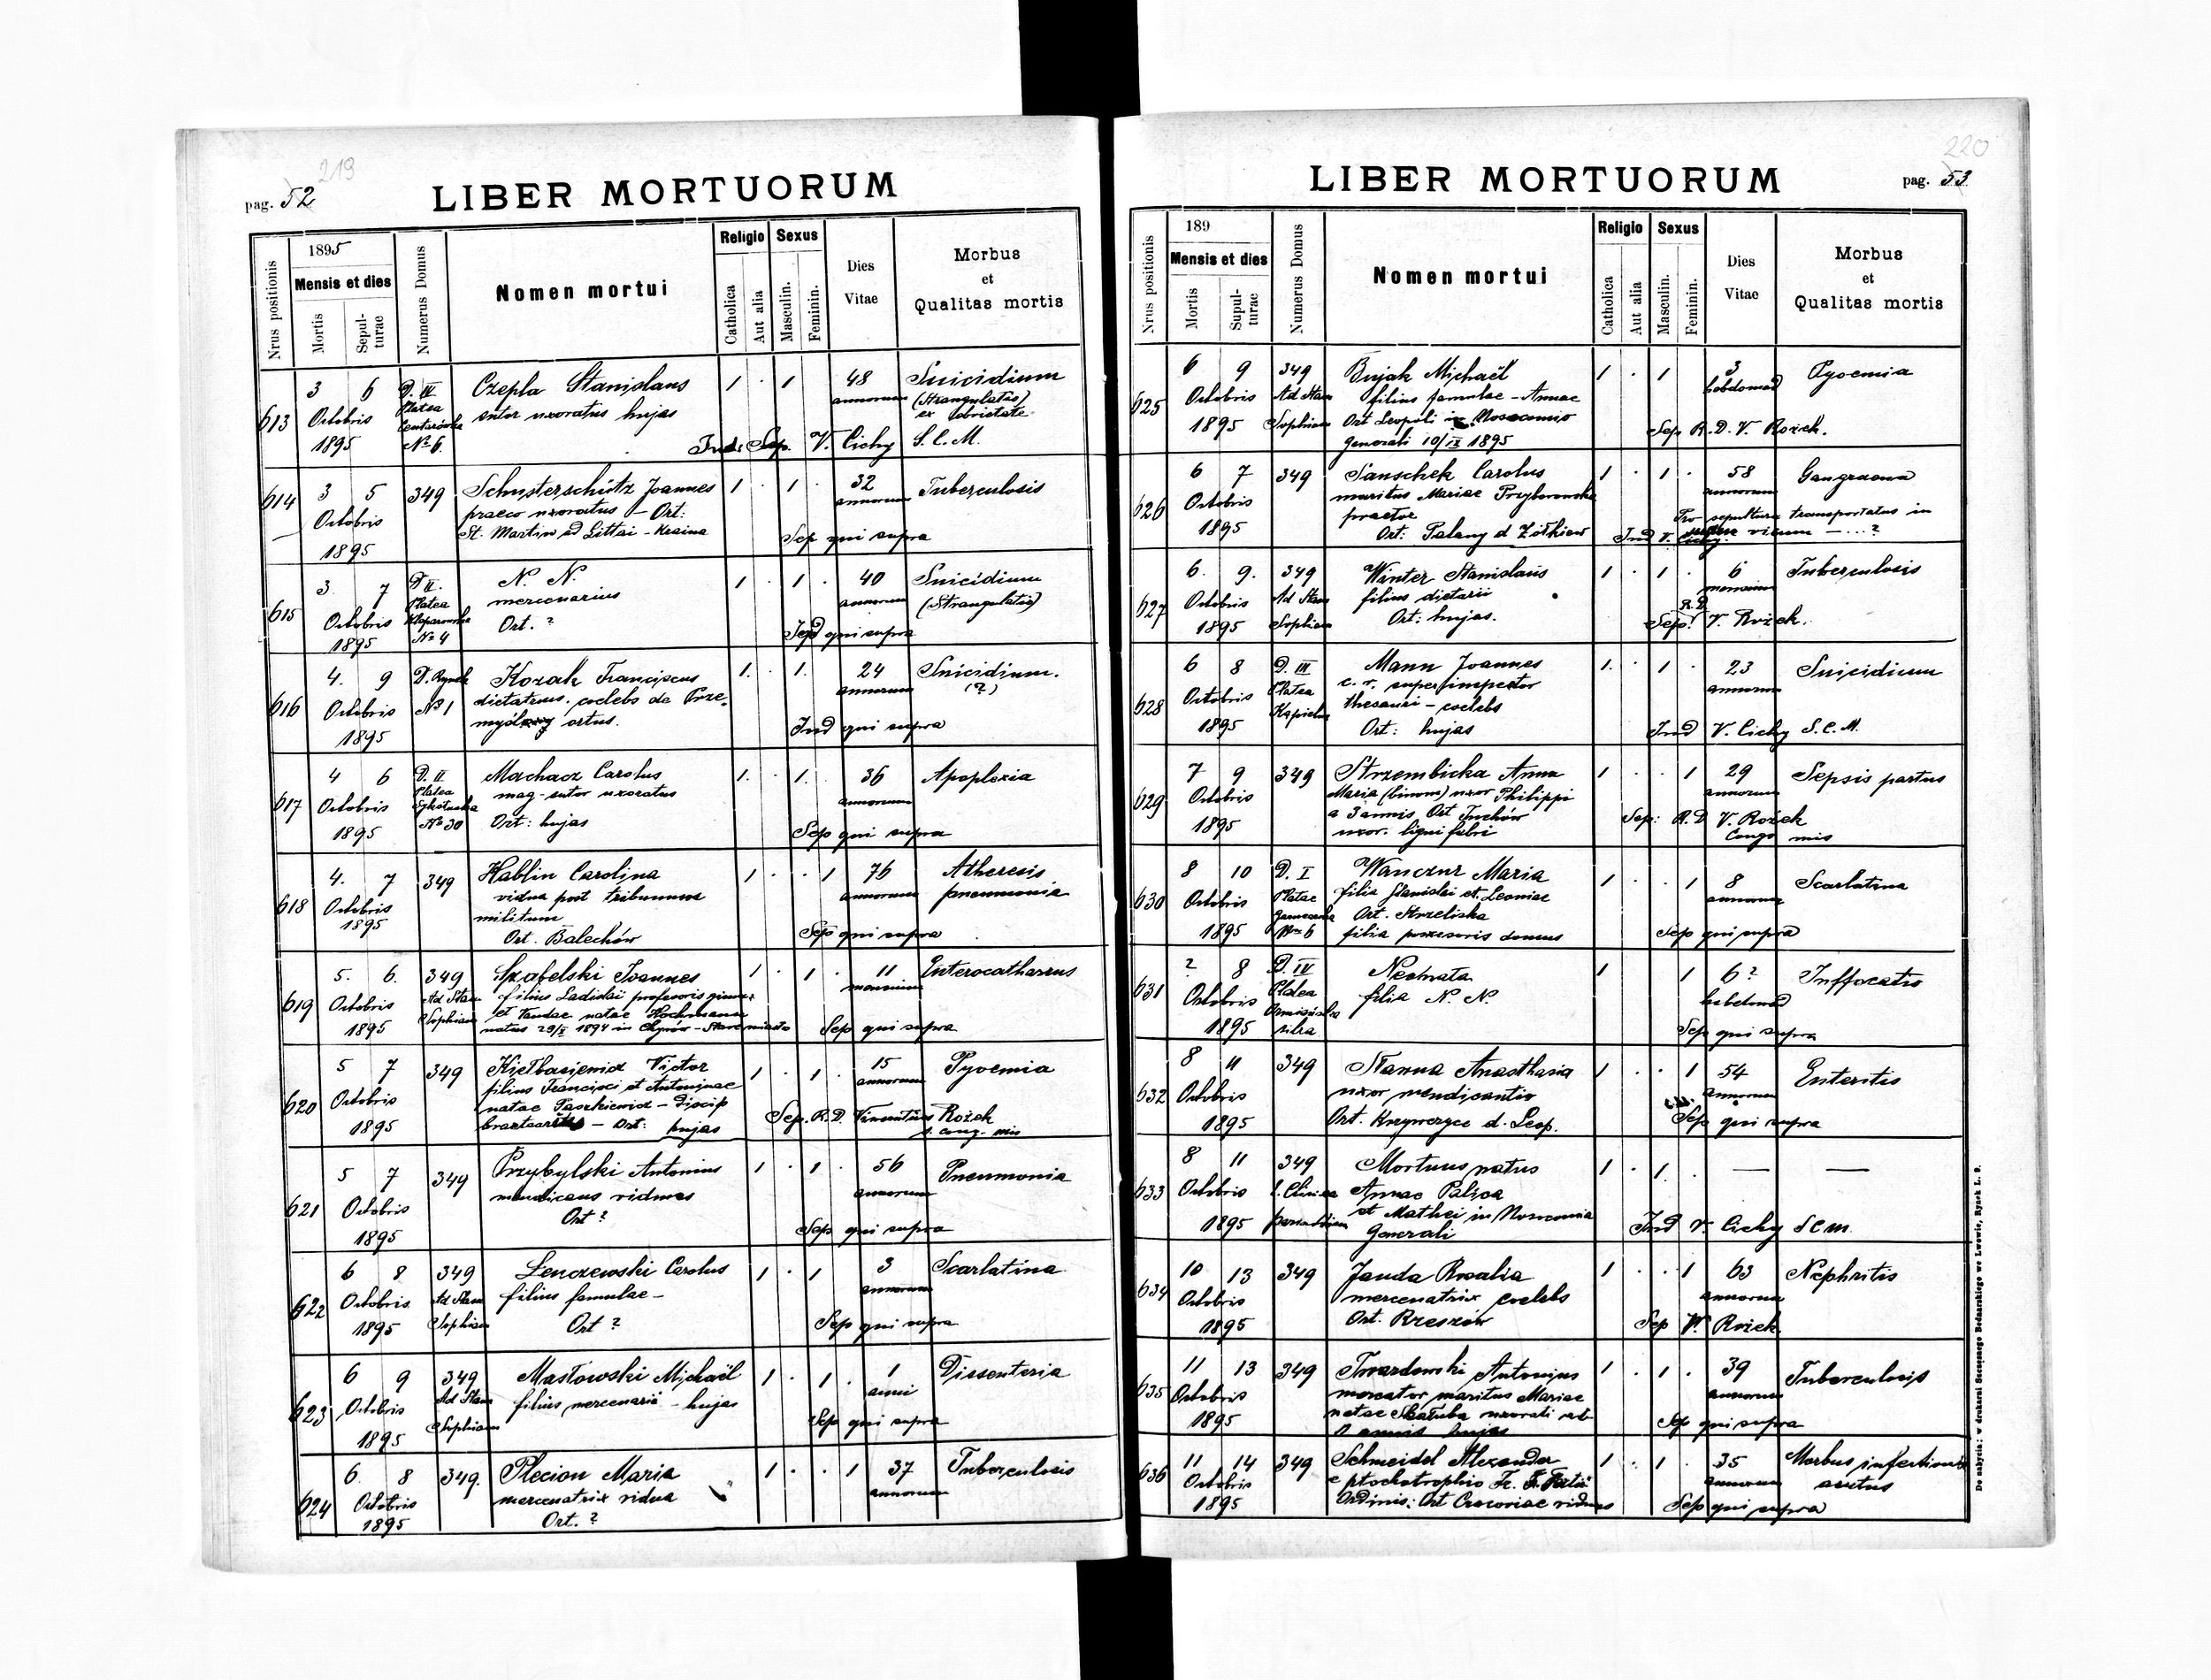 219
pag. 52
LIBER MORTUORUM
Nrus positionis
1895
Mensis et dies
Mortis
Sepulturae
Numerus Domus
Nomen mortui
Religio
Catholica
Aut alia
Sexus
Masculin.
Feminin.
Dies Vitae
Morbus et Qualitas mortis
613 3 6 D. IV Czepla Stanislaus 1 . 1 48 Suicidium
Octobris Platea sutor uxoratus hujas annorum (Strangulatio)
1895 No 6. ex ebrietate
Sep. V. Cichy S. C. M.
614 3 5 349 Schusterschütz Joannes 1 . 1 . 32 Tuberculosis
Octobris praeco uxoratus - Ort: annorum
1895 St. Martin ad Littai - Kraina Sep qui supra
615 3 7 D II. N. N. 1 . 1 . 40 Suicidium
Octobris Platea mercenarius annorum (Strangulatio)
1895 No 4 Ort. ? qui supra
616 4. 9 D. Rynek Kozak Franciscus 1. . 1. 24 Suicidium.
Octobris No 1 coelebs de Prze- annorum (?)
1895 ortus. Ind qui supra
617 4 6 D. II Machacz Carolus 1. . 1. 36 Apoplexia
Octobris Platea mag-sutor uxoratus annorum
1895 No 30 Ort: hujas Sep qui supra
618 4. 7 349 Hablin Carolina 1 . . 1 76
Octobris vidua post annorum pneumonia
1895 militum
Ort. Balechów Sep qui supra
619 5. 6. 349 Szafelski Joannes 1 . 1 . 11 Enterocatharrus
Octobris Ad Stam filius Ladislai profesoris mensium
Sophiam et natae Hochmann
1895 natus 1894 in Chyrów - Staremiasto Sep qui supra
620 5 7 349 Kiełbasiewicz Victor 1 . 1 . 15 Pyoemia
Octobris filius Francisci et Antoninae annorum
natae Paszkiewicz - Discip
1895 - Ort: hujas Sep. R. D. Vincentius Rożek
s. cong. mis
621 5 7 349 Przybylski Antonius 1 . 1 . 56 Pneumonia
Octobris mendicans viduus annorum
1895 Ort ? Sep qui supra
622 6 8 349 Lenczewski Carolus 1 . 1 3 Scarlatina
Octobris Ad Stam filius famulae - annorum
1895 Sophiam Ort ? Sep qui supra
623 6 9 349 Masłowski Michaël 1 . 1 . 1 Dissenteria
Octobris Ad Stam filius mercenarii - hujas anni
1895 Sophiam Sep qui supra
624 6. 8 349. Plecion Maria 1 . . 1 37 Tuberculosis
Octobris mercenatrix vidua annorum
1895 Ort. ?
220
pag. 53
LIBER MORTUORUM
Nrus positionis
189
Mensis et dies
Mortis
Supulturae
Numerus Domus
Nomen mortui
Religio
Catholica
Aut alia
Sexus
Masculin.
Feminin.
Dies Vitae
Morbus et Qualitas mortis
625 6 9 349 Bujak Michaël 1 . 1 3 Pyoemia
Octobris Ad Stam filius famulae - Annae hebdomad
1895 Sophiam Ort Leopoli in Nosocomio Sep R. D. V. Rożek.
generali 10/IX 1895
626 6 7 349 Sauschek Carolus 1 . 1 . 58 Gangraena
Octobris maritus Mariae Przyborowska annorum
praetor Pro sepultura transportatus in
1895 Ort: Palany d Żółkiew Ind V. Cichy
627 6. 9. 349 Winter Stanislaus 1 . 1 . 6 Tuberculosis
Octobris Ad Stam filius dietarii mensium
1895 Sophiam Ort: hujas. Sep. R.D. V. Rożek.
628 6 8 D. III Mann Joannes 1. . 1 . 23 Suicidium
Octobris Platea c. r. superinspector annorum
Kąpielna thesauri - coelebs
1895 Ort: hujas Ind V. Cichy S. C. M.
629 7 9 349 Strzembicka Anna 1 . . 1 29 Sepsis partus
Octobris Maria (binom) uxor Philippi annorum
a 3 annis Ort Tuchów Sep: R. D V. Rożek
1895 uxor. ligni fabri Congo mis
630 8 10 D. I Wanczur Maria 1 . . 1 8 Scarlatina
Octobris Platae filia Stanislai et Leoniae annorum
Ort. Strzeliska
1895 Nro 6 filia possesoris domus Sep qui supra
631 ? 8 D. IV Neonata 1 1 6? Suffocatio
Octobris Platea filia N. N. hebdomad
1895 silva Sep qui supra
632 8 11 349 Nanna Anasthasia 1 . . 1 54 Enteritis
Octobris uxor mendicantis annorum
1895 Ort. Krzywczyce d. Leop. Sep qui supra
633 8 11 349 Mortuus natus 1 . 1 . — —
Octobris Annae Paliga
et Mathei in Nosocomio
1895 generali Ind V. Cichy S C M.
634 10 13 349 Janda Rosalia 1 . . 1 63 Nephritis
Octobris mercenatrix coelebs annorum
1895 Ort. Rzeszów Sep V. Rożek
635 11 13 349 Twardowski Antonius 1 . 1 . 39 Tuberculosis
Octobris mercator maritus Mariae annorum
1895 natae Skałuba uxorati ab
annis hujas Sep qui supra
636 11 14 349 Schneidel Alexander 1 . 1 . 35 Morbus infectionis
Octobris e ptochotrophio Fr. annorum acutus
1895 Ordinis: Ort Cracoviae viduus Sep qui supra
Do nabycia: w drukarni Szczęsnego Bednarskiego we Lwowie, Rynek L. 9.